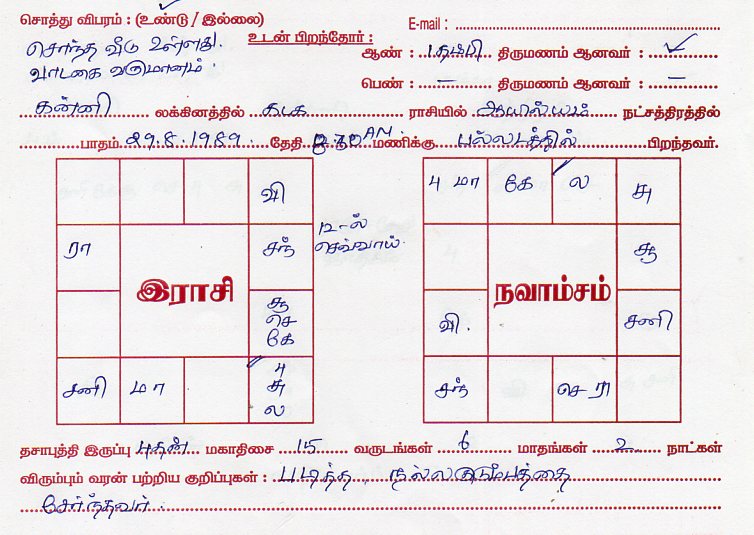 சொத்து விபரம் : (உண்டு / இல்லை)
E-mail :
சொந்த வீடு உள்ளது.
உடன் பிறந்தோர் :
வாடகை வருமானம்.
ஆண் : தம்பி திருமணம் ஆனவர் : ✓
பெண் : – திருமணம் ஆனவர் : –
கன்னி லக்கினத்தில் கடக ராசியில் ஆயில்யம் நட்சத்திரத்தில்
பாதம் 29.8.1989 தேதி AM மணிக்கு பல்லடத்தில் பிறந்தவர்.
வி
ரா
சந்
12-ல்
செவ்வாய்.
இராசி
சூ
செ
கே
சனி
மா
பு
சு
ல
பு மா
கே
ல
சு
சூ
நவாம்சம்
வி.
சனி
சந்
செ ரா
தசாபுத்தி இருப்பு புதன் மகாதிசை 15 வருடங்கள் 6 மாதங்கள் 2 நாட்கள்
விரும்பும் வரன் பற்றிய குறிப்புகள் : படித்த, நல்ல குடும்பத்தை
சேர்ந்தவர்.